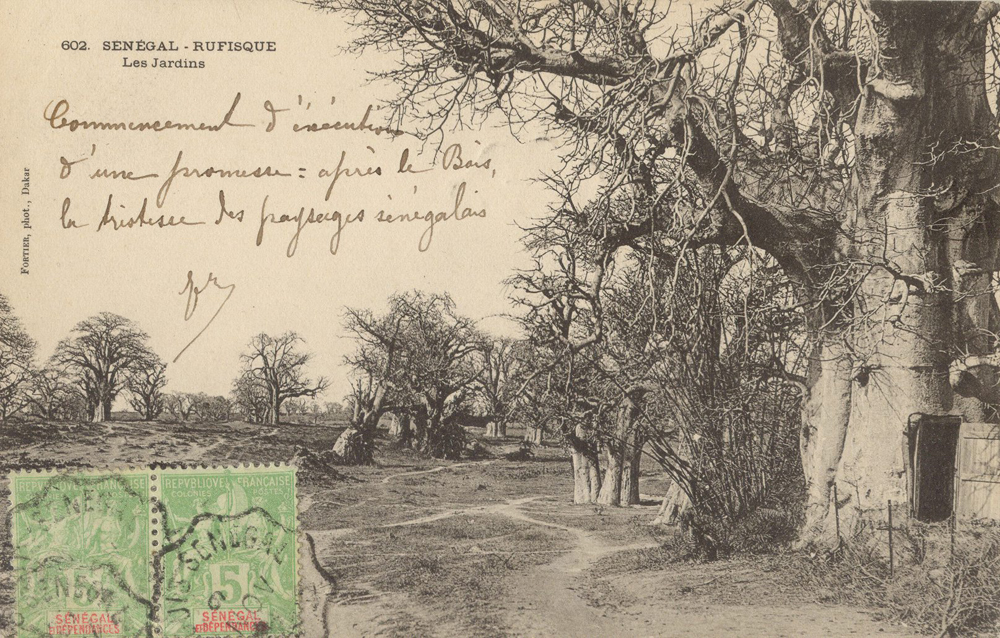 602. SENÉGAL - RUFISQUE
Les Jardins
Commencement d'exécution
d'une promesse = après le Bois,
la tristesse des paysages sénégalais
FORTIER, phot., Dakar
RÉPUBLIQUE FRANÇAISE
COLONIES POSTES
5
SÉNÉGAL
ET DÉPENDANCES
RÉPUBLIQUE FRANÇAISE
COLONIES POSTES
5
SÉNÉGAL
ET DÉPENDANCES
SENEGAL